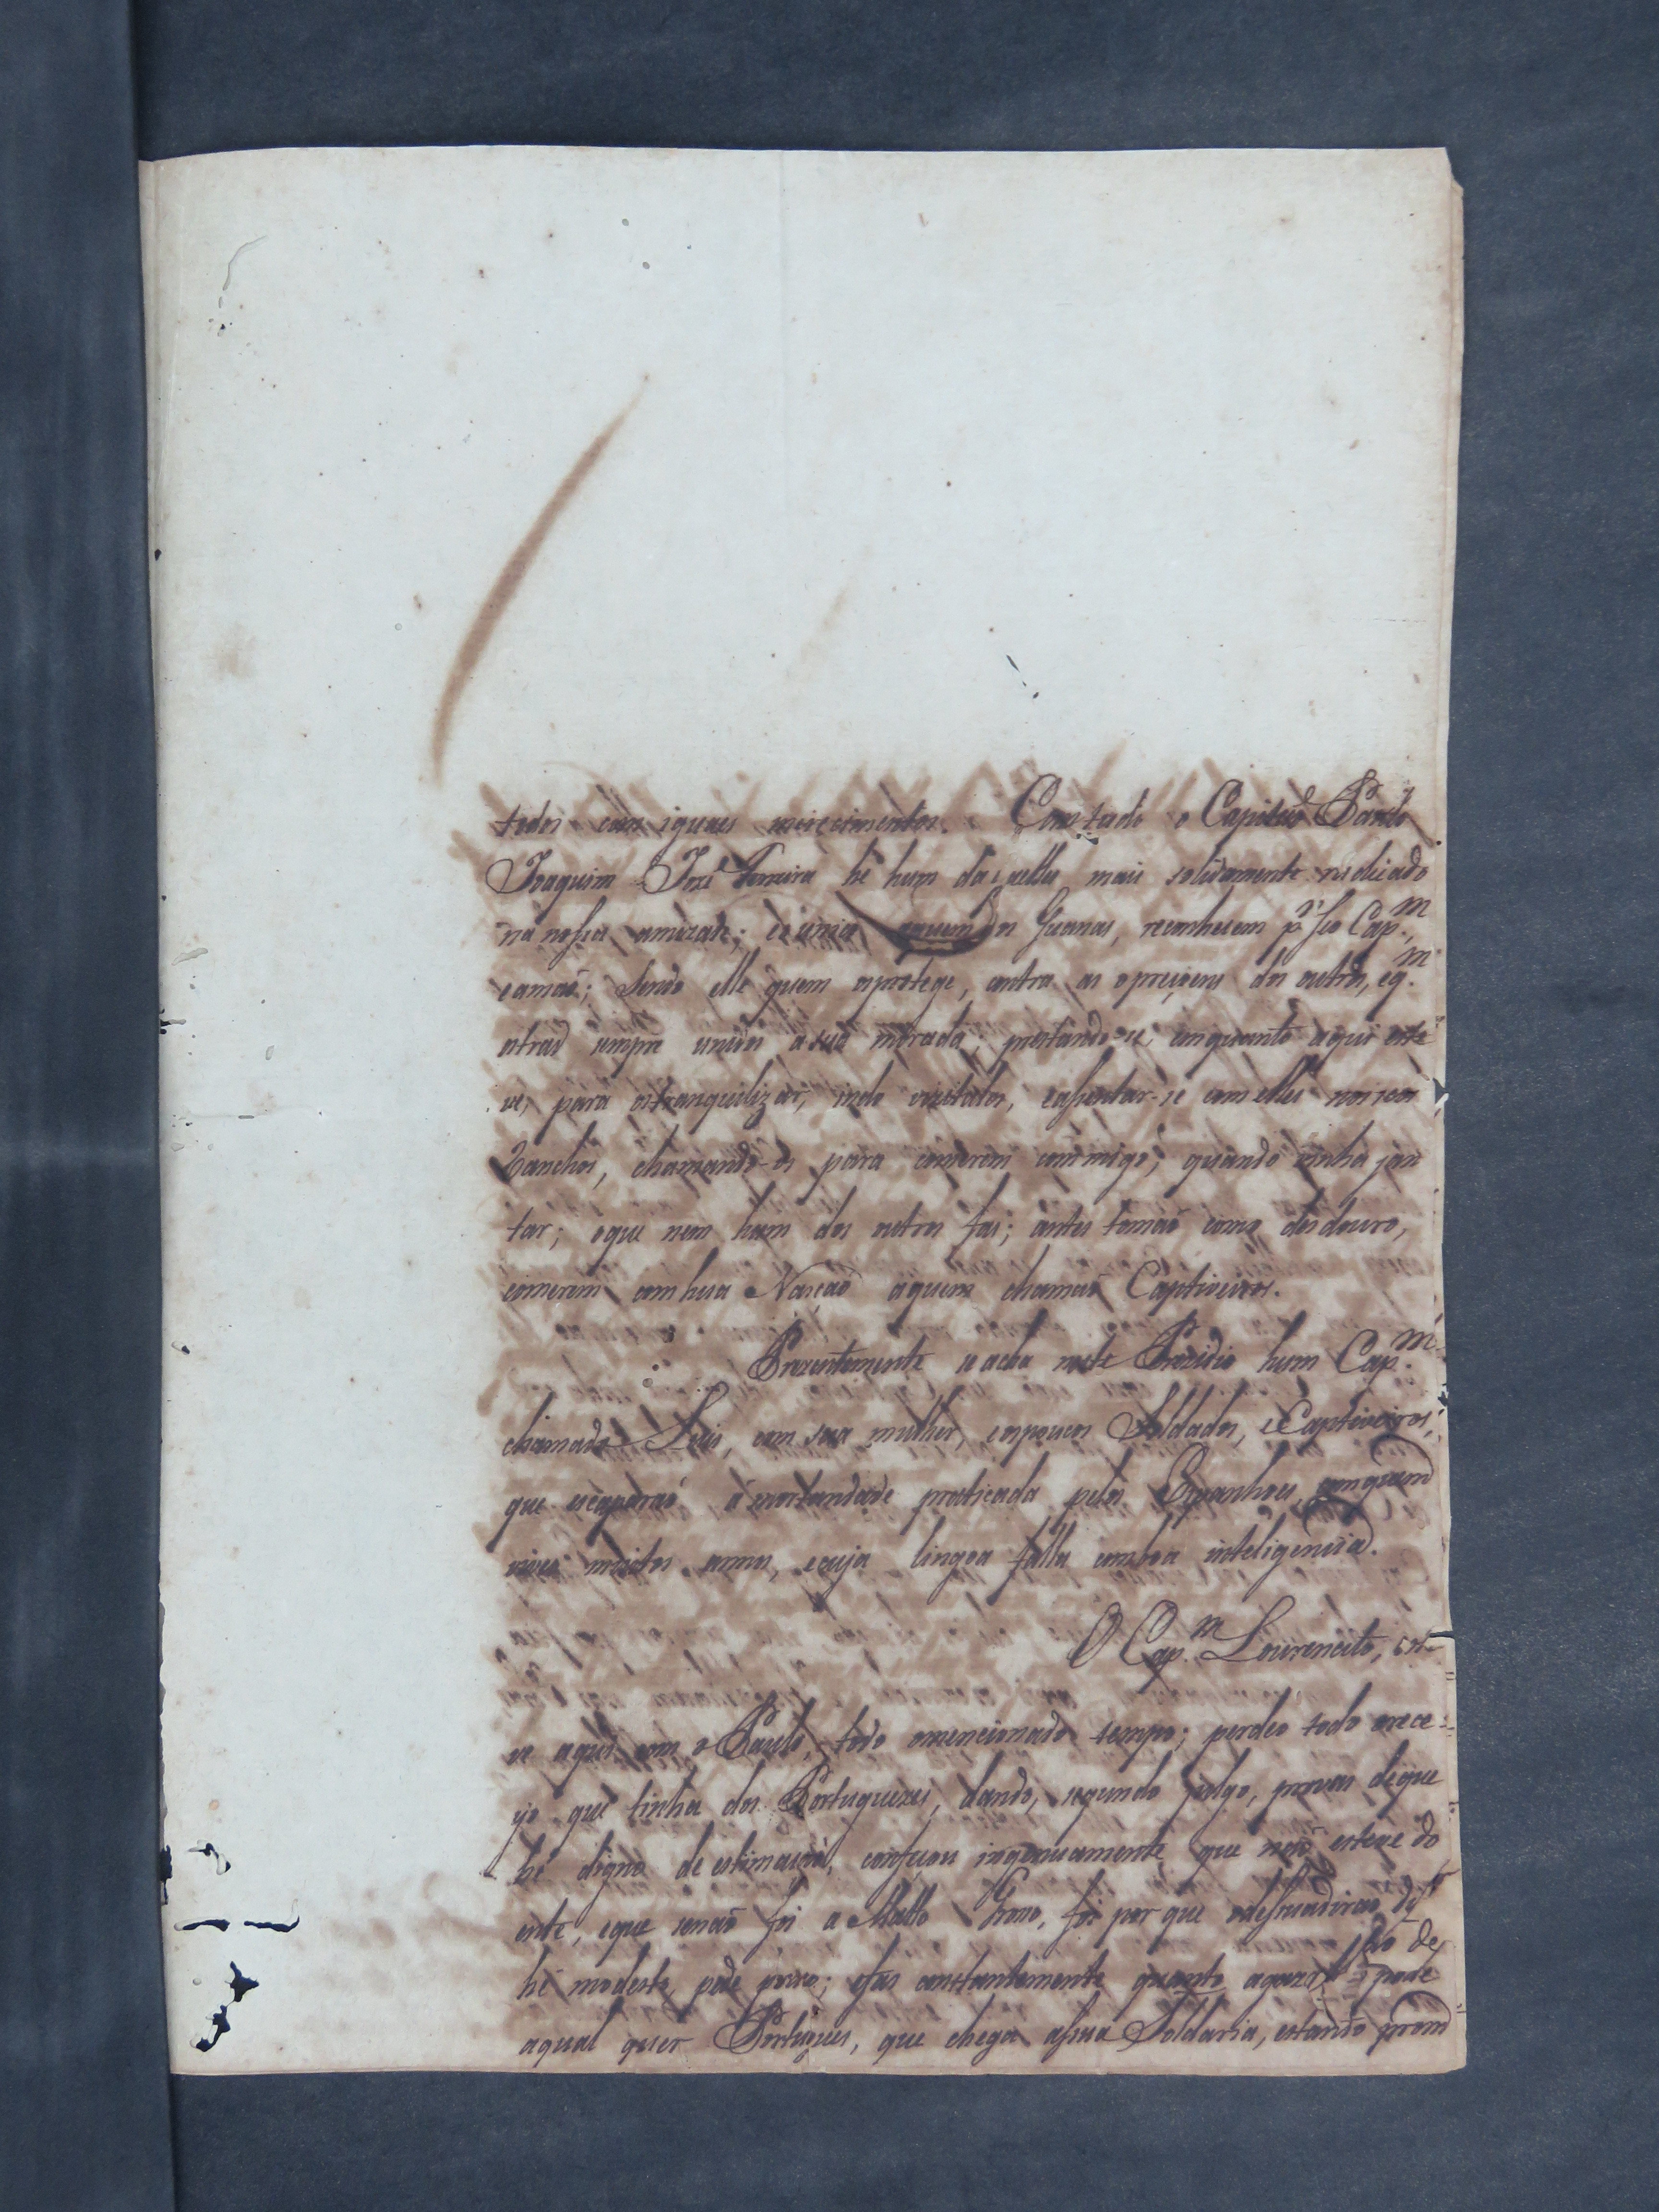 todos com iguaes merecimentos. Com tudo o Capitaõ Paulo
Joaquim Jozé Ferreira hé hum daquelles mais solidamente radicado
na nossa amizade; he unico aquem os Guanas, reconhecem pʳ seo Cap.ᵐ,
e amaõ; sendo elle quem os protege, contra as opreçoens dos outros, e q.ᵐ
os tras sempre unidos a sua morada; prestando-se, em quanto aqui este
ve, para os tranquilizar, indo vizitalos, easentar-se com elles nos seos
Ranchos, chamando-os para comerem commigo, quando vinha jan
tar; oque nem hum dos outros fas; antes tomaõ como desdouro,
comerem com hua Naçaõ aquem chamaõ Captiveiros.
Prezentemente se acha neste Prezidio hum Cap.ᵐ
chamado Luis, com sua mulher, e os poucos Soldados, e Captiveiros,
que escaparaõ á mortandade praticada pelos Espanhoes, com quem
viveo muitos annos, e cuja lingoa falla com boa inteligencia.
O Cap.ᵐ Lourencito, este
ve aqui com o Paulo, todo o mencionado tempo; perdeo todo o rece
yo que tinha dos Portuguezes, dando, segundo julgo, provas de que
hé digno de estimaçaõ, confeçou ingenuamente que naõ esteve do
ente, e que senaõ foi a Matto Groso, foi por que o desuadiraõ
hé modesto, pede pouco; e fas constantemente quanto pode
aqual quer Portugues, que chega asua Soldaria, estando prom